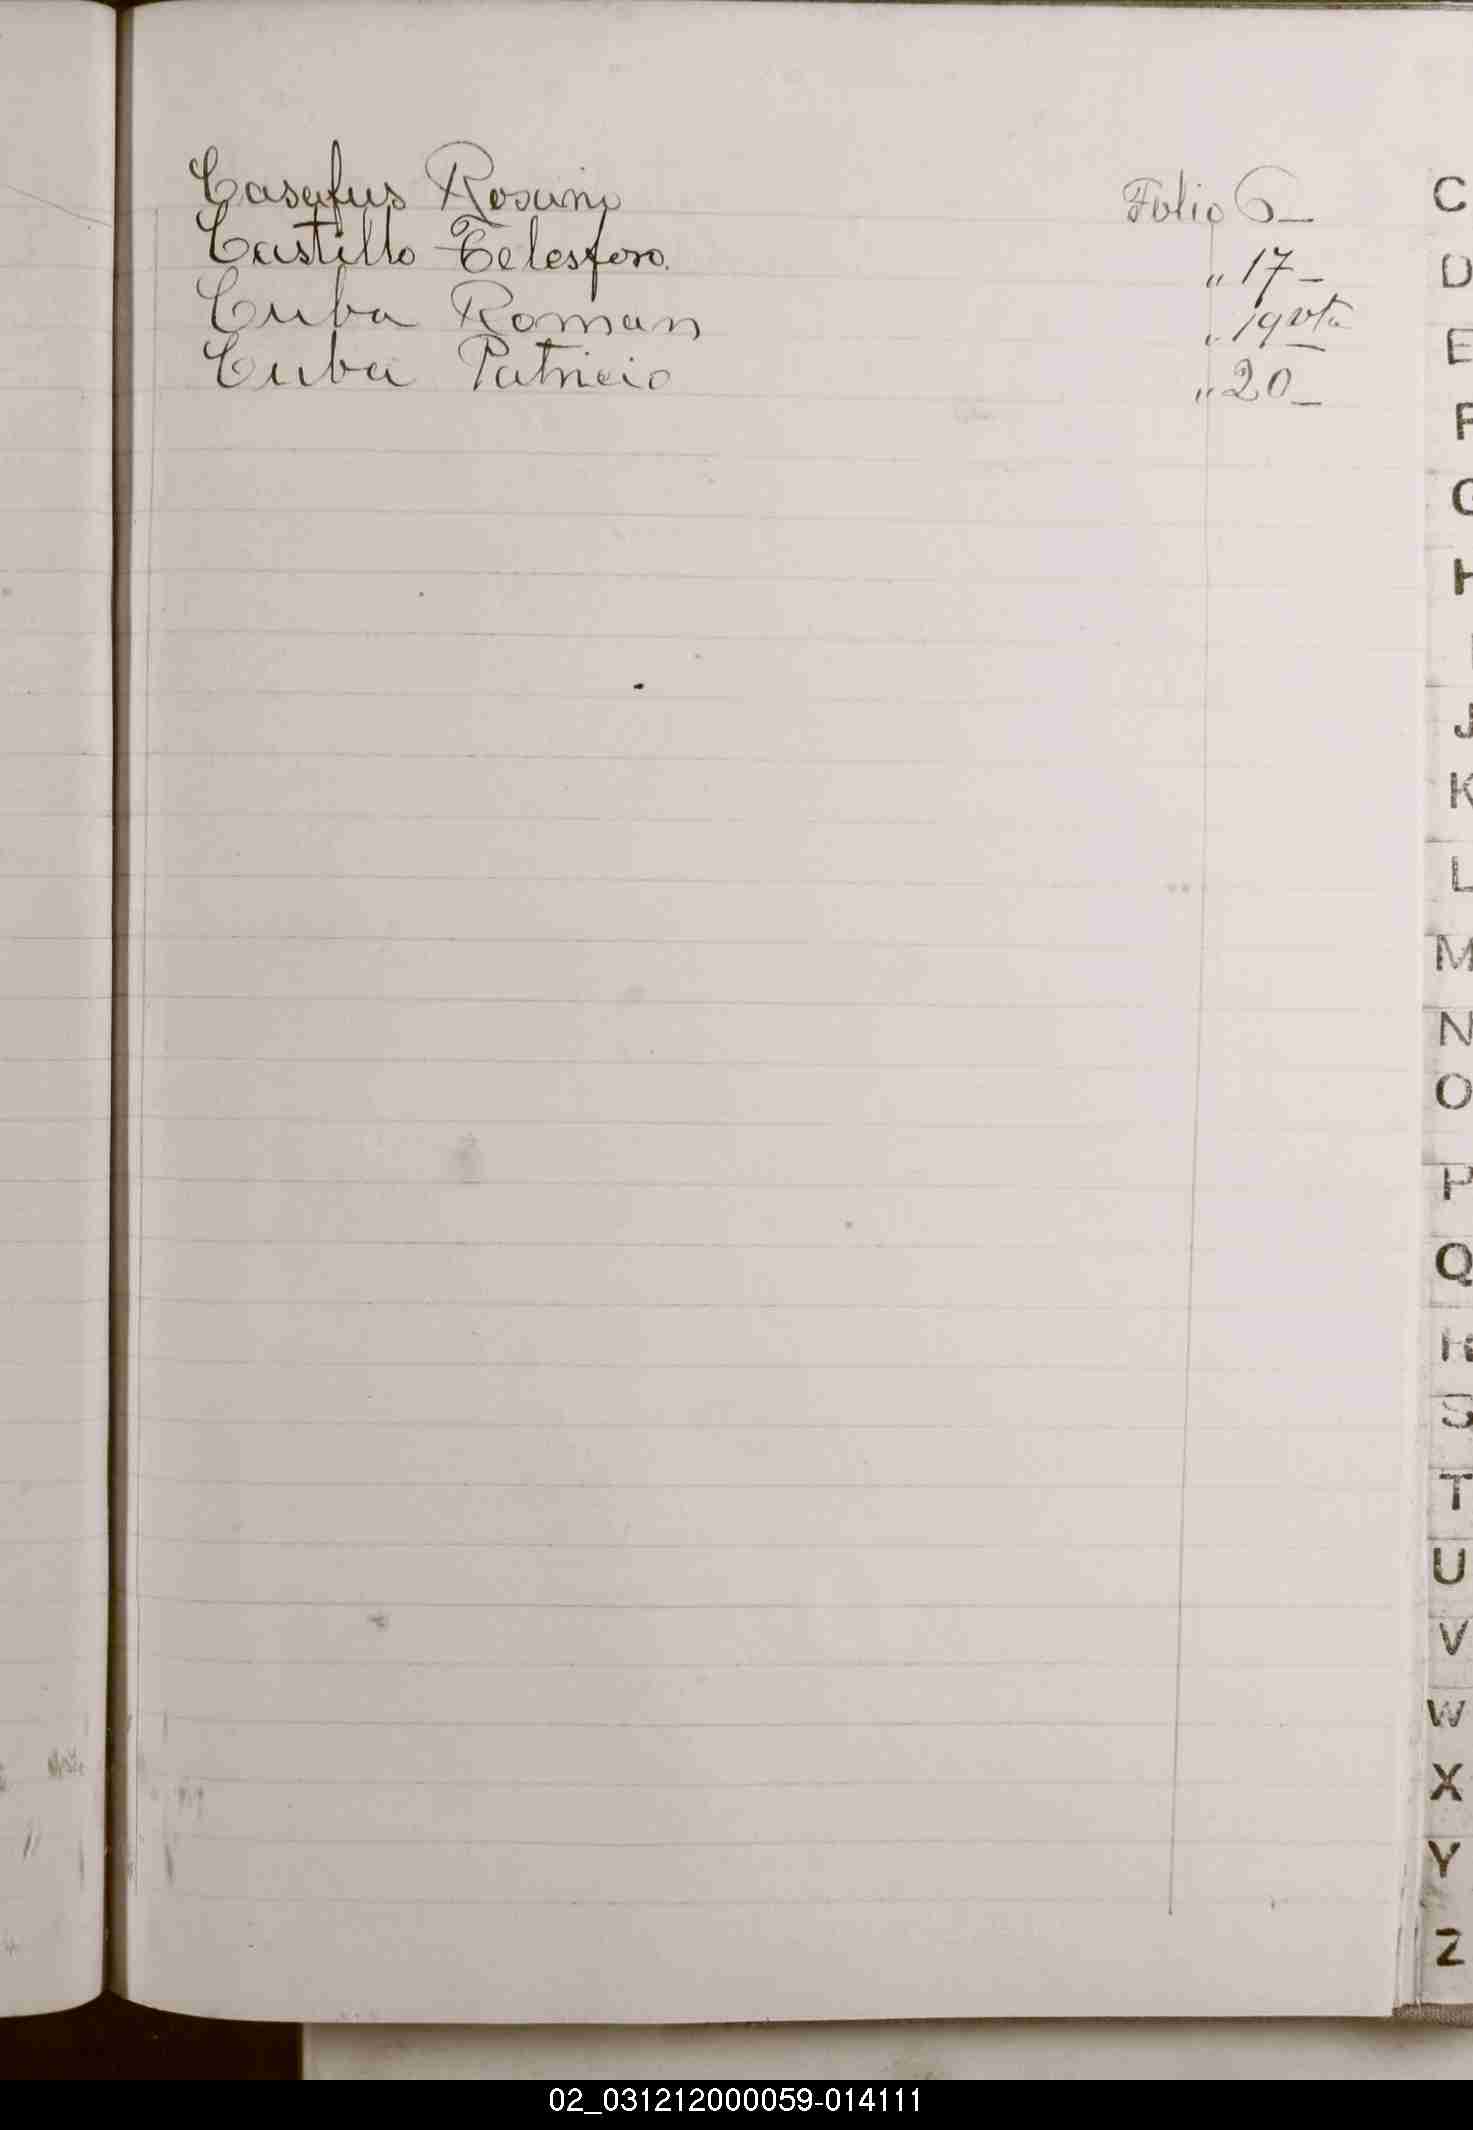 Casafus Rosum Folio 6_
Castillo Telesforo. " 17_
Cuba Roman " 19 vta
Cuba Patricio " 20_
C
D
E
F
G
H
I
J
K
L
M
N
O
P
Q
R
S
T
U
V
W
X
Y
Z
02_031212000059-014111